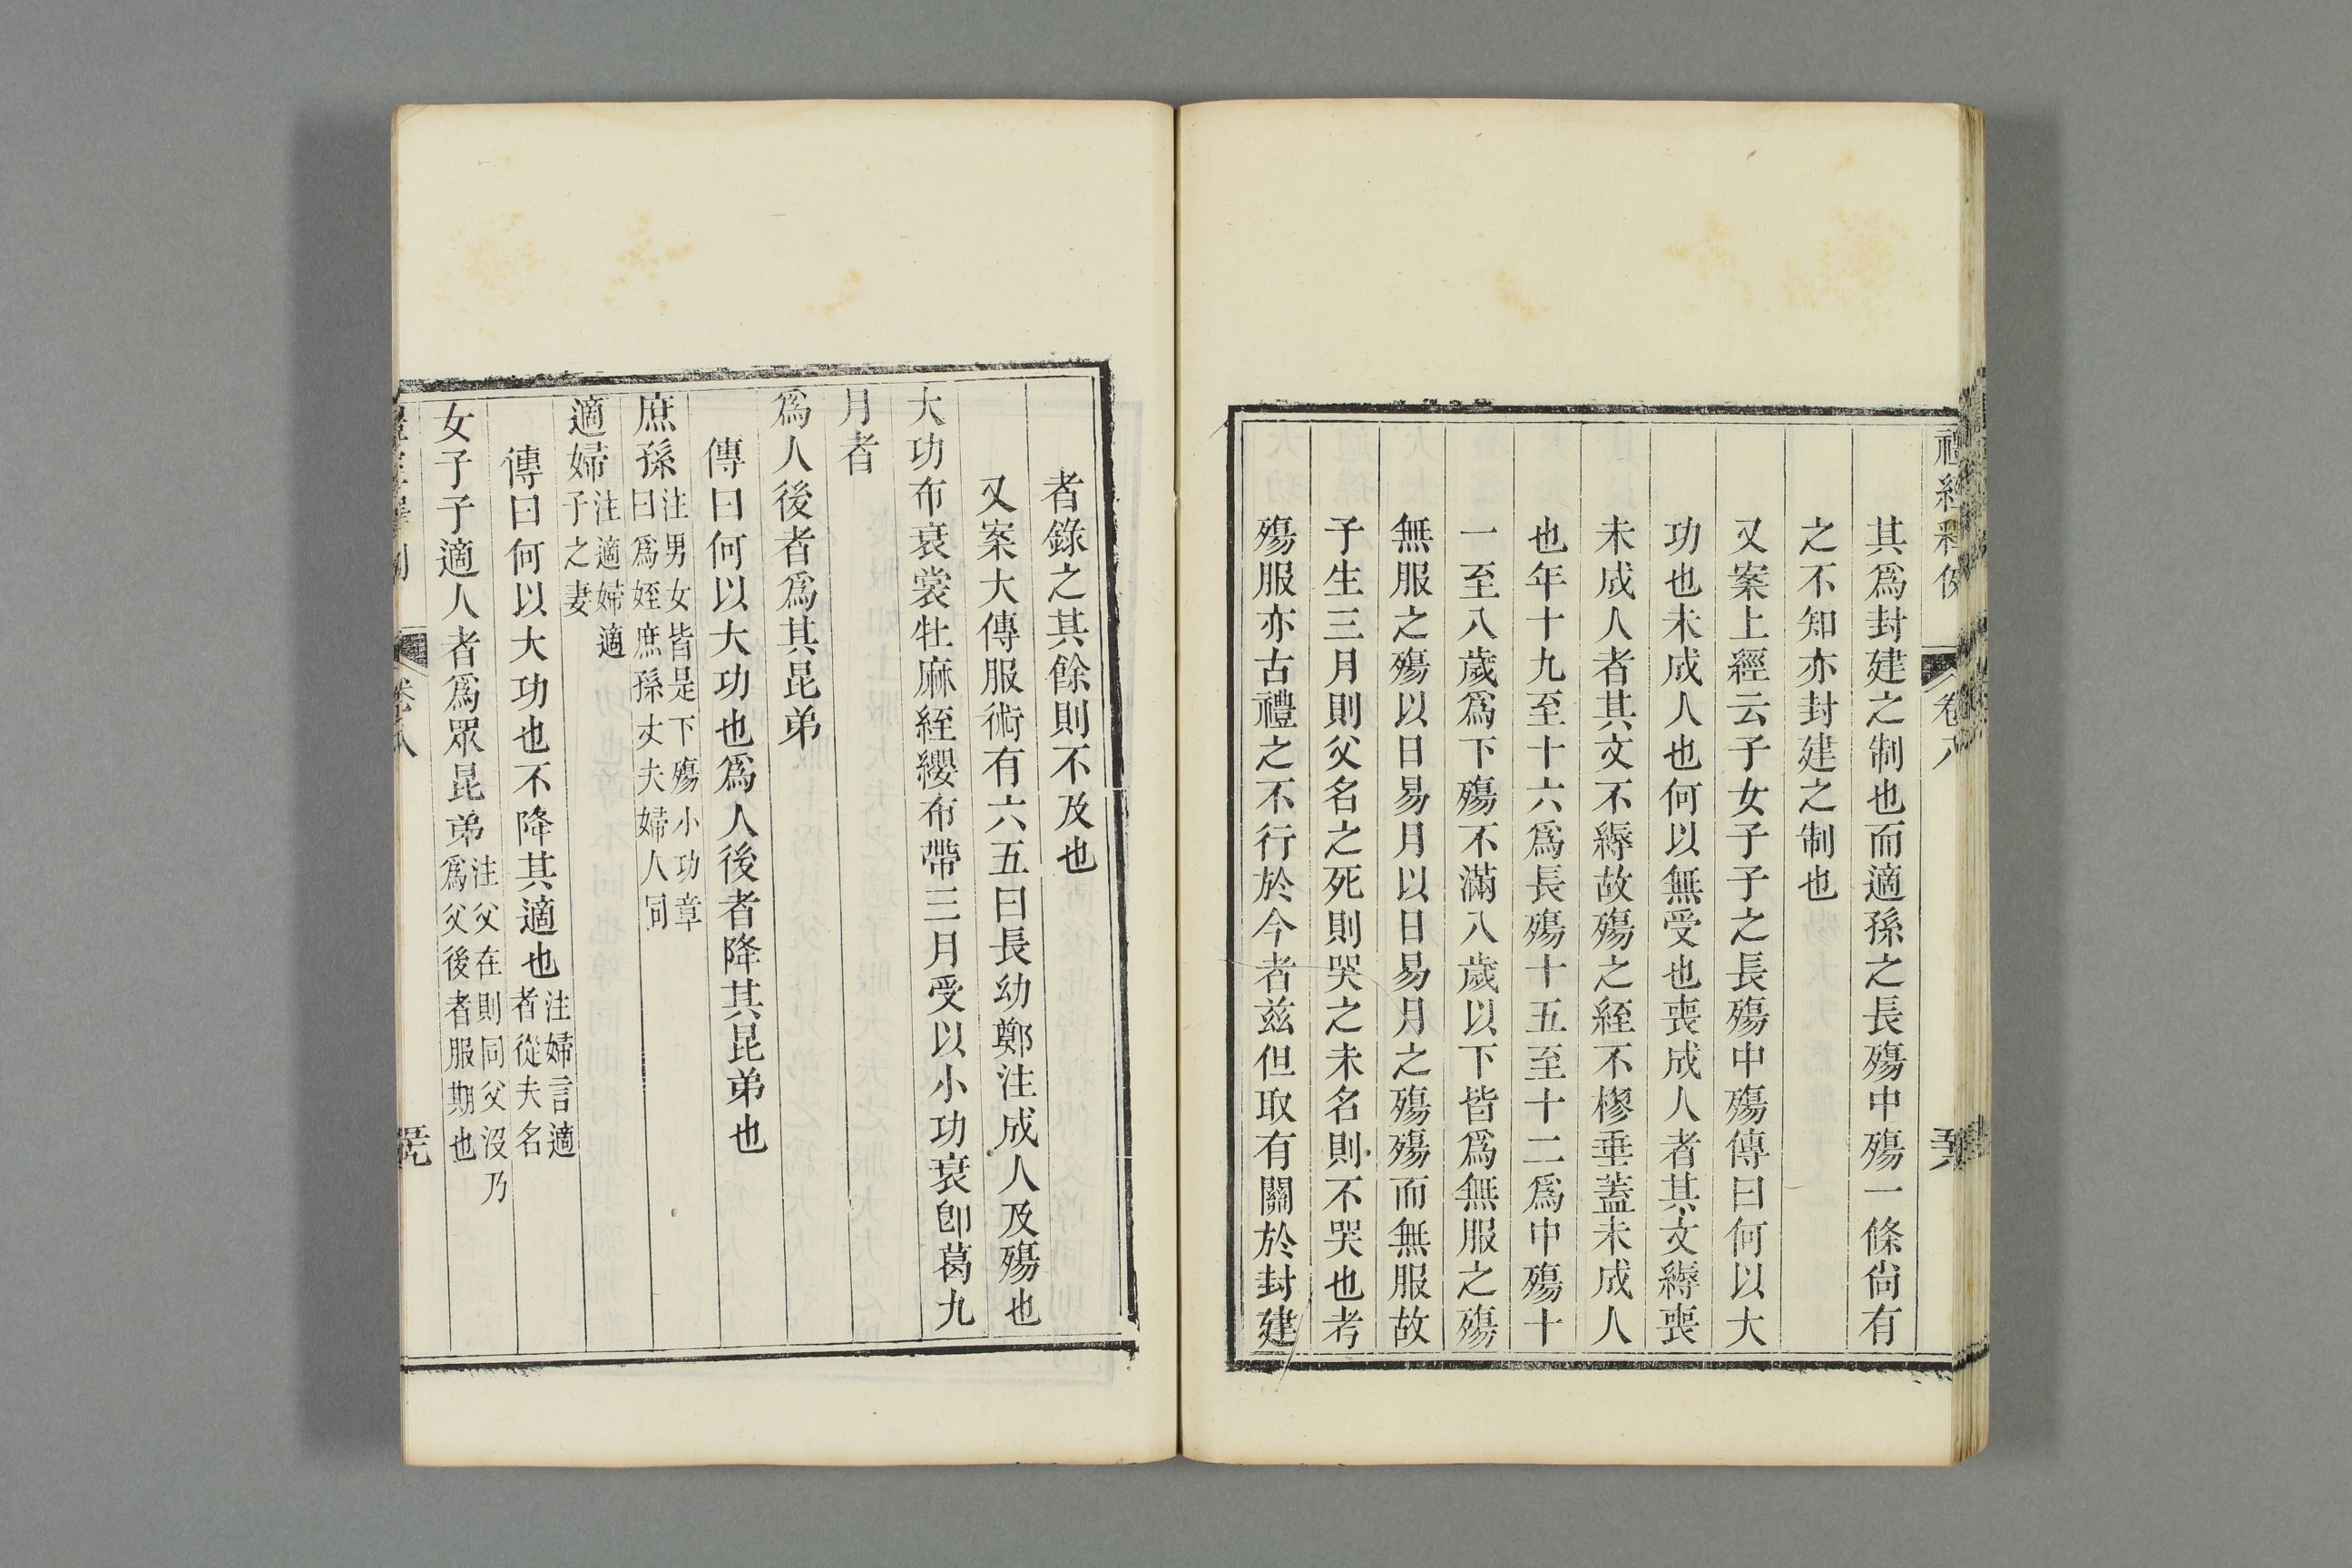 禮經釋例
卷八
其爲封建之制也而適孫之長殤中殤一條尙有
之不知亦封建之制也
又案上經云子女子子之長殤中殤傳曰何以大
功也未成人也何以無受也喪成人者其文縟喪
未成人者其文不縟故殤之絰不樛垂蓋未成人
也年十九至十六爲長殤十五至十二爲中殤十
一至八歲爲下殤不滿八歲以下皆爲無服之殤
無服之殤以日易月以日易月之殤殤而無服故
子生三月則父名之死則哭之未名則不哭也考
殤服亦古禮之不行於今者兹但取有關於封建
者錄之其餘則不及也
又案大傳服術有六五曰長幼鄭注成人及殤也
大功布衰裳牡麻絰纓布帶三月受以小功衰卽葛九
月者
爲人後者爲其昆弟
傳曰何以大功也爲人後者降其昆弟也
庶孫注男女皆是下殤小功章
曰爲姪庶孫丈夫婦人同
適婦注適婦適
子之妻
傳曰何以大功也不降其適也注婦言適
者從夫名
女子子適人者爲眾昆弟注父在則同父沒乃
爲父後者服期也
卷八